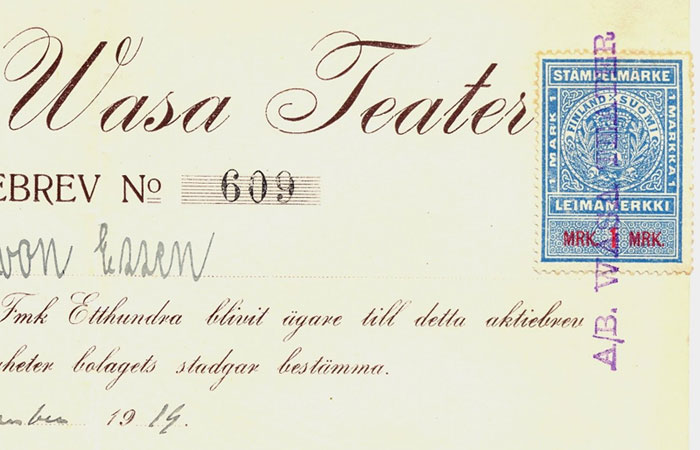 Wasa Teater
EBREV No 609
von Essen
Fmk Etthundra blivit ägare till detta aktiebrev
gheter bolagets stadgar bestämma.
mber 1919.
STÄMPELMÄRKE
FINLAND SUOMI
1 MARK 1
1 MARKKA
LEIMAMERKKI
MRK. 1 MRK.
A/B. WASA TEATER